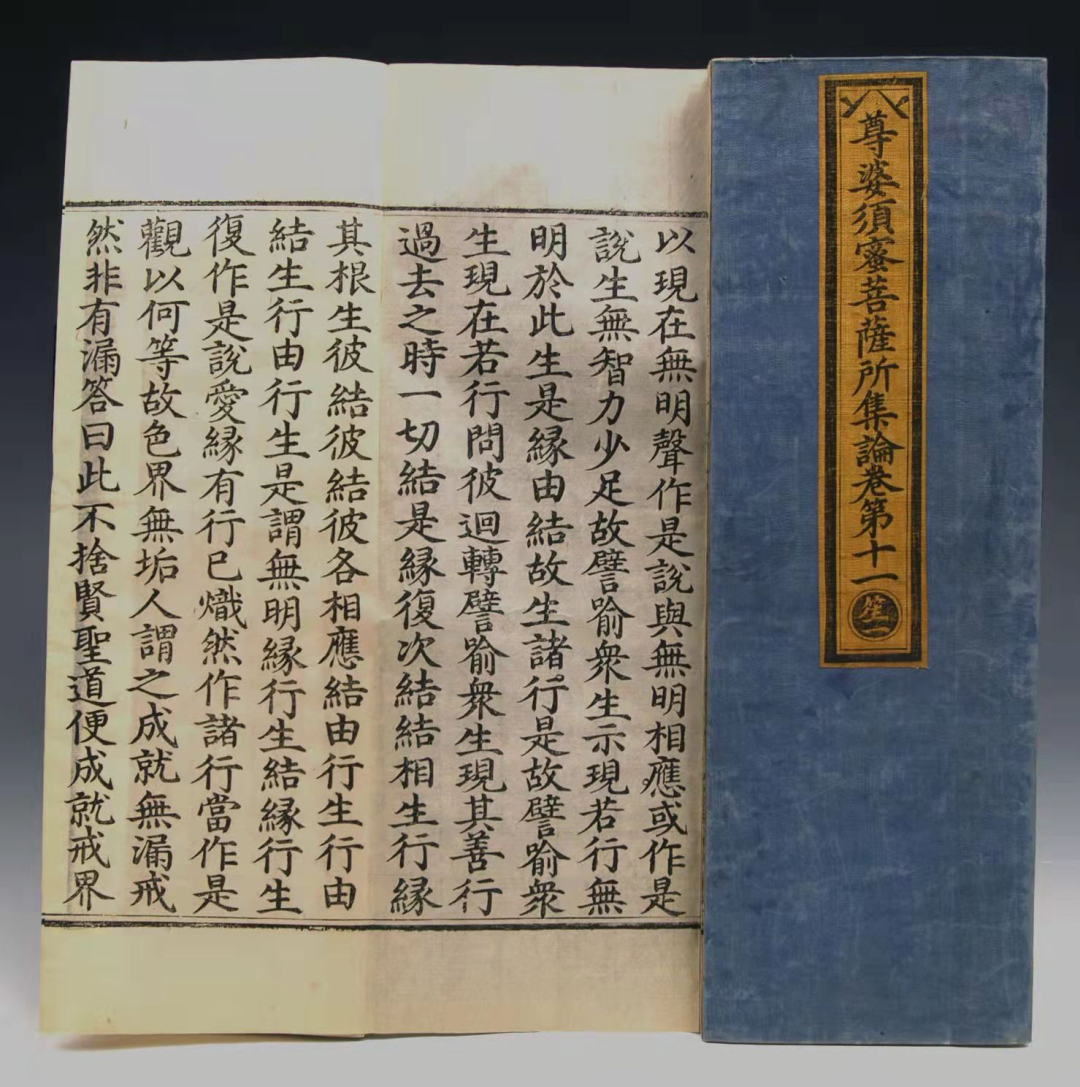 尊婆須蜜菩薩所集論卷第十一 笙一
以現在無明聲作是說與無明相應或作是
說生無智力少足故譬喻衆生示現若行無
明於此生是縁由結故生諸行是故譬喻衆
生現在若行問彼迴轉譬喻衆生現其善行
過去之時一切結是縁復次結結相生行縁
其根生彼結彼結彼各相應結由行生行由
結生行由行生是謂無明縁行生結縁行生
復作是說愛縁有行已熾然作諸行當作是
觀以何等故色界無垢人謂之成就無漏戒
然非有漏答曰此不捨賢聖道便成就戒界